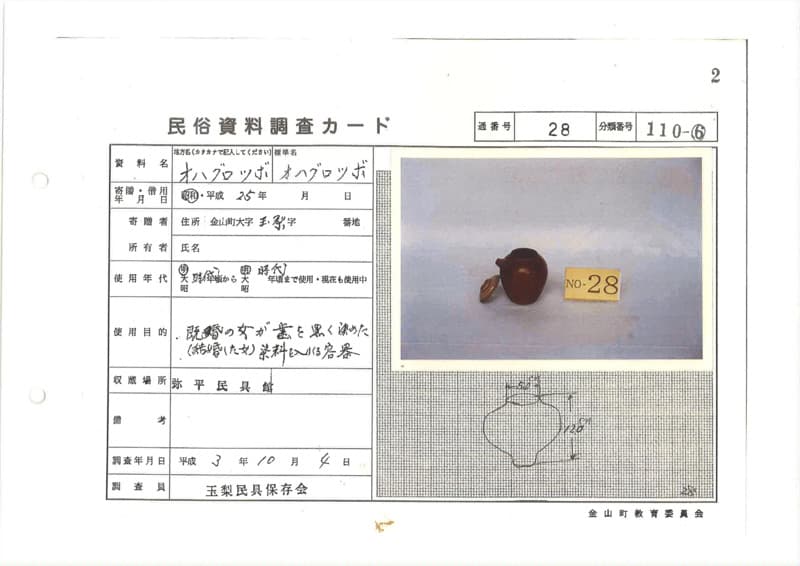 2
民俗資料調査カード
通番号 28 分類番号 110-⑥
資料名 地方名(カタカナで記入してください) 標準名
オハグロツボ オハグロツボ
寄贈・借用年月日 昭和・平成 25年 月 日
寄贈者 住所 金山町大字 玉梨 字 番地
所有者 氏名
使用年代 明 大 昭 時代 年頃から 明 大 昭 時代 年頃まで使用・現在も使用中
使用目的 既婚の女が歯を黒く染めた
(結婚した女)染料を入れる容器
収蔵場所 弥平民具館
備考
調査年月日 平成 3 年 10 月 4 日
調査員 玉梨民具保存会
NO-28
120
28
金山町教育委員会